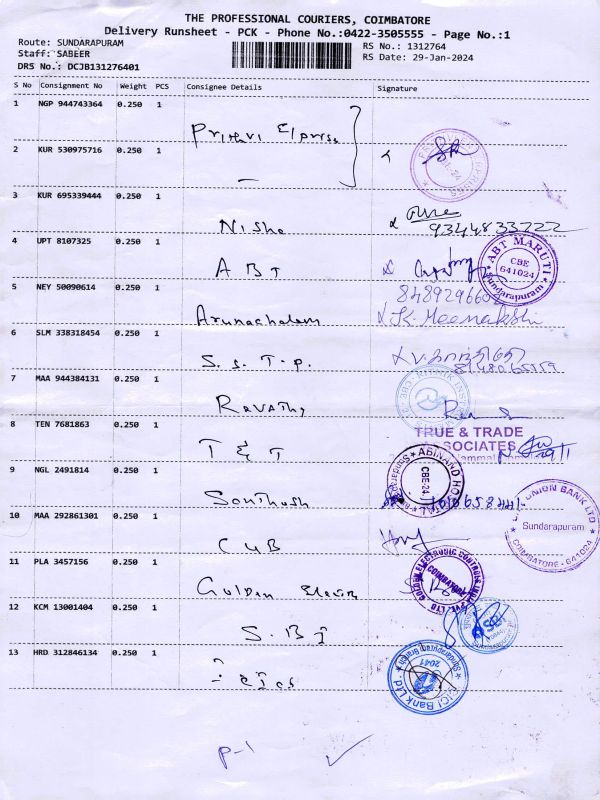 THE PROFESSIONAL COURIERS, COIMBATORE
Delivery Runsheet - PCK - Phone No.:0422-3505555 - Page No.:1
Route: SUNDARAPURAM
RS No.: 1312764
Staff: SABEER
RS Date: 29-Jan-2024
DRS No.: DCJB131276401
S No Consignment No Weight PCS Consignee Details Signature
1 NGP 944743364 0.250 1
Prithvi
2 KUR 530975716 0.250 1
3 KUR 695339444 0.250 1
Nisha 9344833222
4 UPT 8107325 0.250 1
A B T
ABT MARUTI
CBE
641024
Sundarapuram
5 NEY 50090614 0.250 1
Arunachalam K. Meenakshi
6 SLM 338318454 0.250 1
S. S. T. P.
7 MAA 944384131 0.250 1
Revathy
8 TEN 7681863 0.250 1
T & T
TRUE & TRADE
ASSOCIATES
9 NGL 2491814 0.250 1
Santhosh
ABINAND HOSPITAL
CBE-24
10 MAA 292861301 0.250 1
C U B
CITY UNION BANK LTD
Sundarapuram
COIMBATORE - 641024
11 PLA 3457156 0.250 1
Golden
GOLDEN ELECTRONIC CONTROLS
COIMBATORE
12 KCM 13001404 0.250 1
S. B I
SBI
13 HRD 312846134 0.250 1
ICICI
ICICI Bank Ltd.
Sundarapuram Branch
2041
P-1